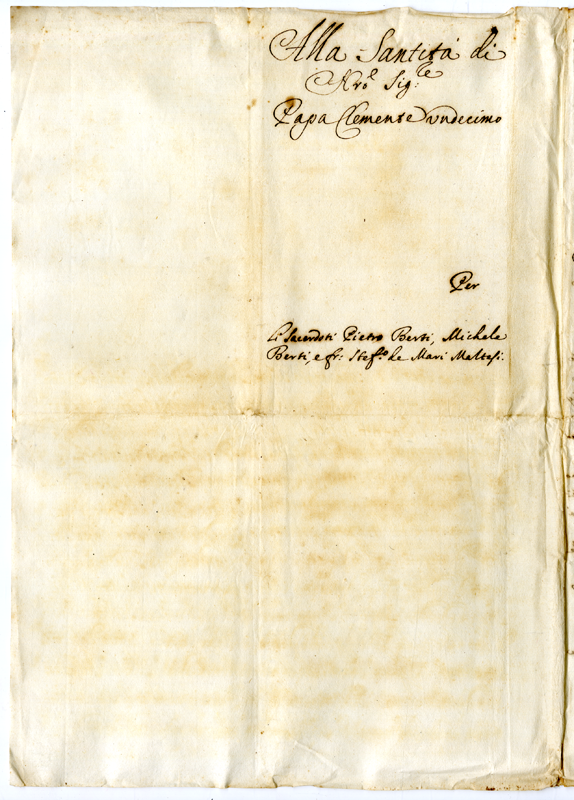 Alla Santità di
Nro͂ Sig:re
Papa Clemente vndecimo
Per
Li Sacerdoti Pietro Berti, Michele
Berti, e fr: Stef.o de Mari Maltesi.